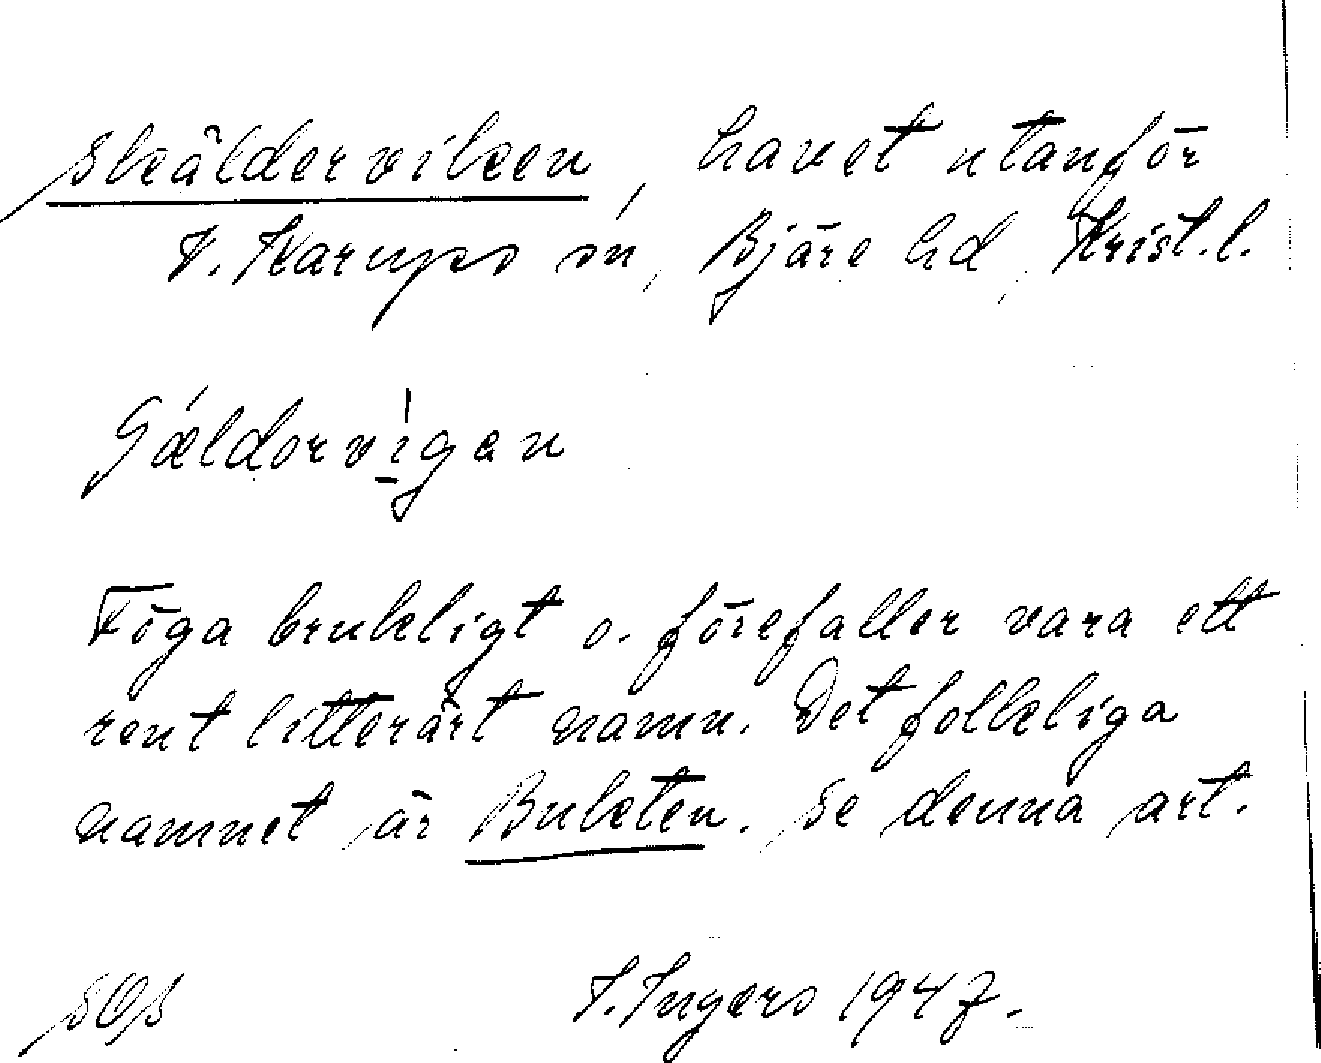 Skälderviken, havet utanför
V. Karups sn, Bjäre hd, Krist. l.
Föga brukligt o. förefaller vara ett
rent litterärt namn. Det folkliga
namnet är Bukten. Se denna art.
SOS
I. Ingers 1947.